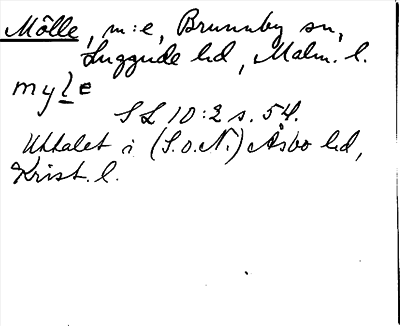 Mölle, m:e, Brunnby sn,
Luggude hd, Malm. l.
myle
SL 10:2 s. 54.
Uttalet i (S.o.N.) Åsbo hd,
Krist. l.